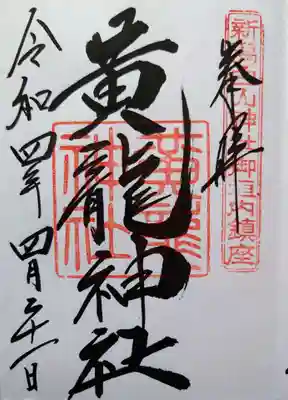 新潟白山神社御垣内鎮座
奉拝
黄龍神社
黄龍
神社
令和四年四月二十一日